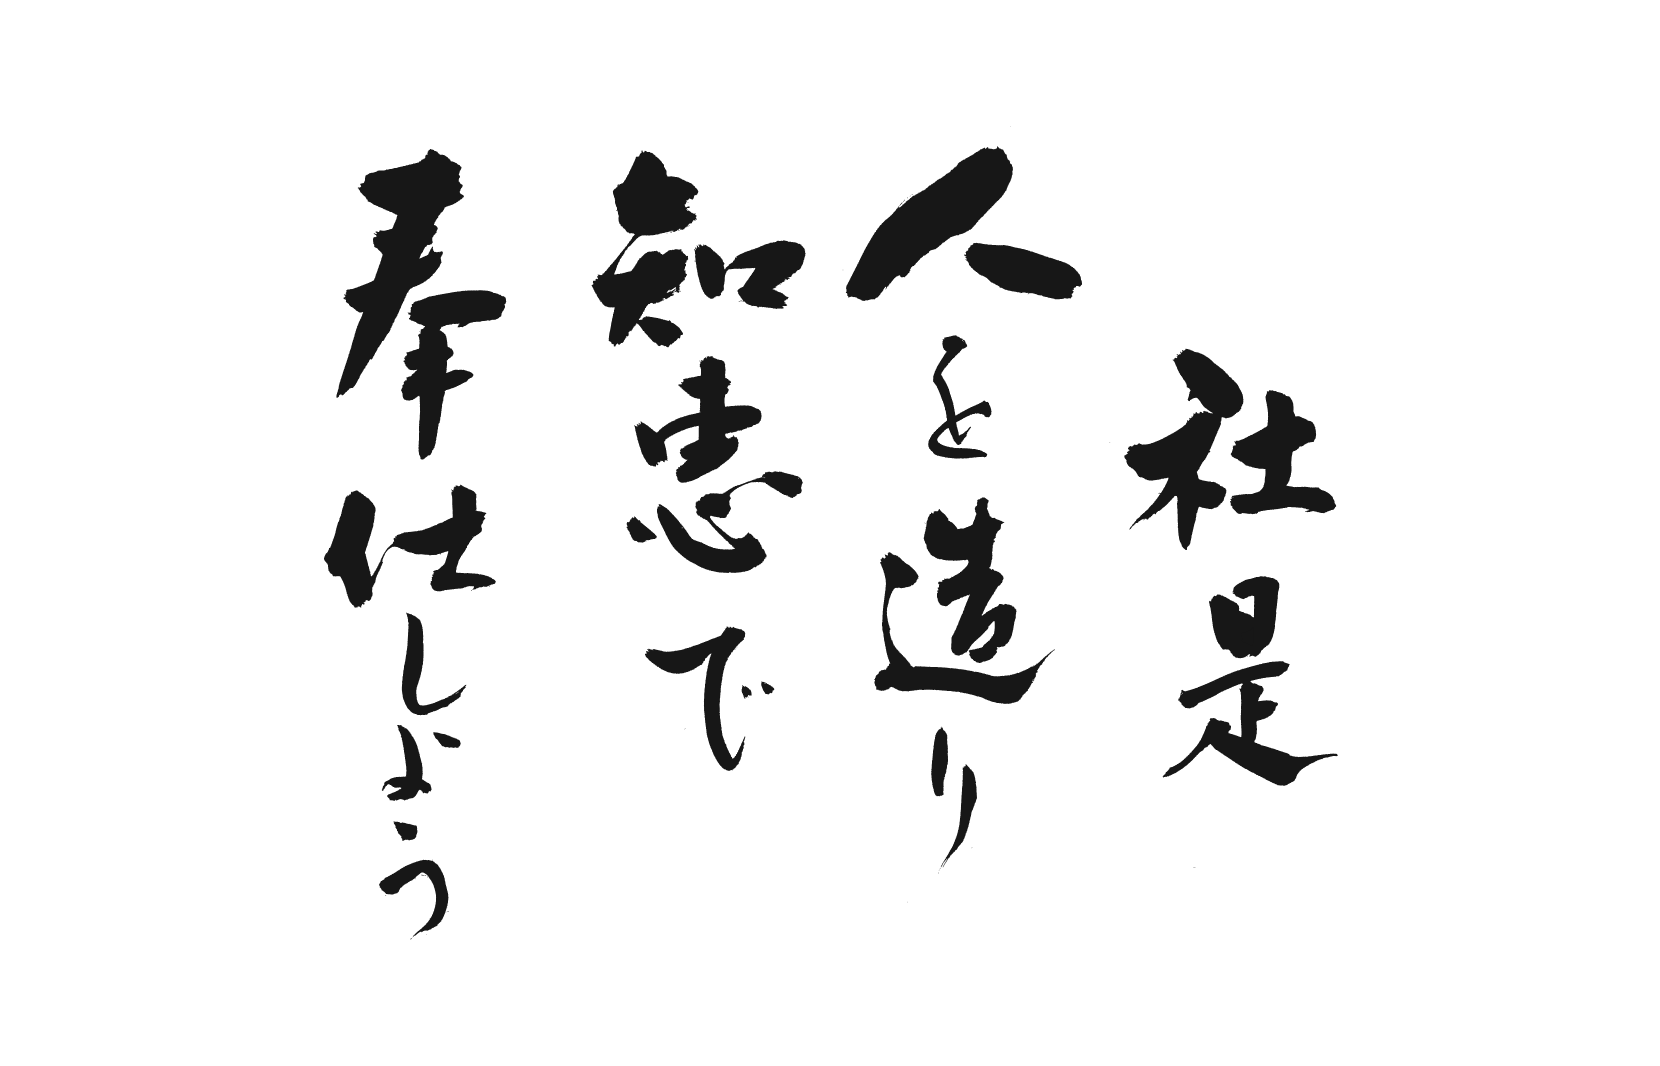 社是
人を造り
知恵で
奉仕しよう